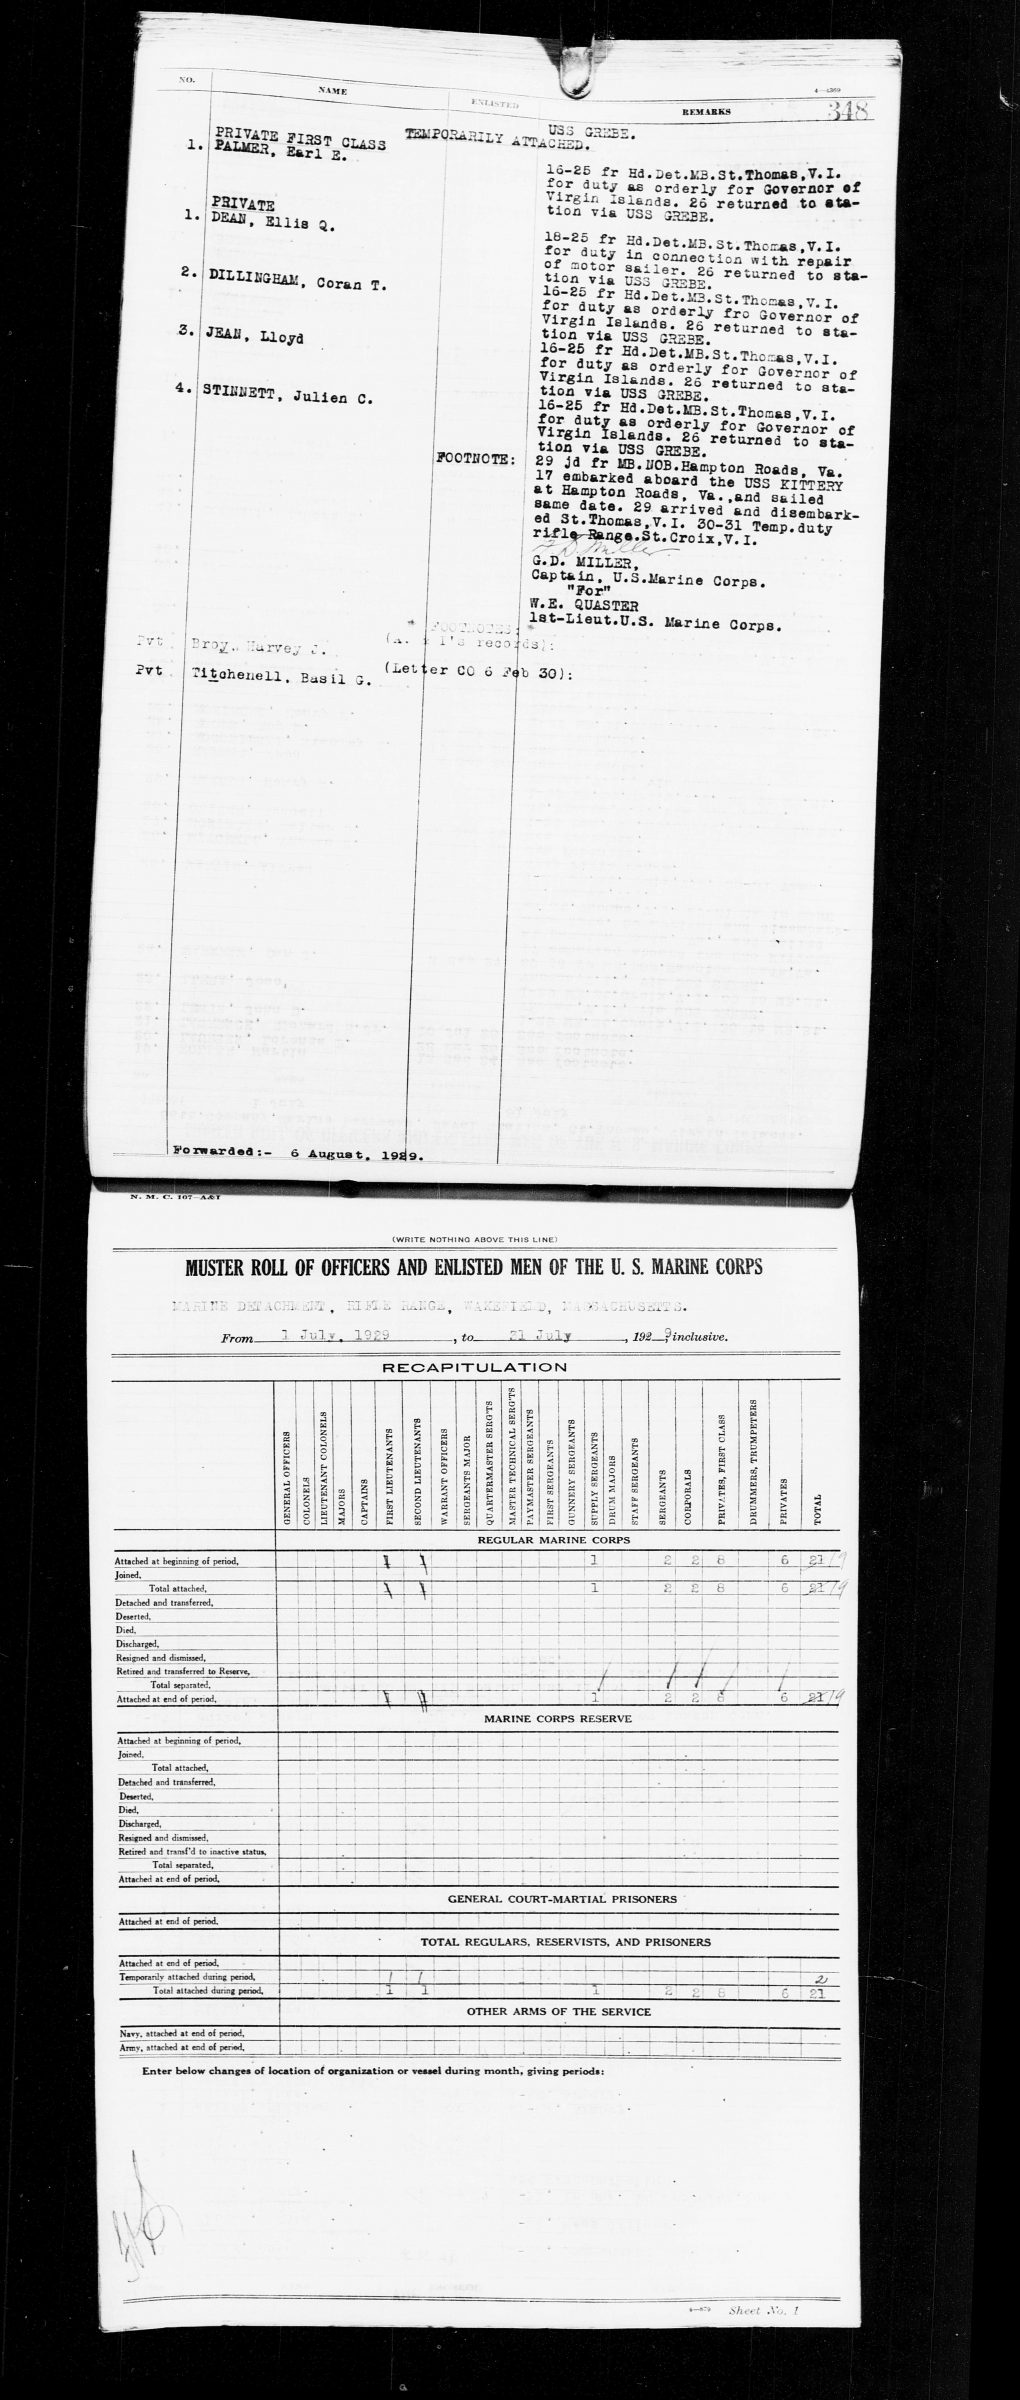 NO. NAME ENLISTED REMARKS 4—1369
348
USS GREBE.
TEMPORARILY ATTACHED.
PRIVATE FIRST CLASS
1. PALMER, Earl E.
16-25 fr Hd.Det.MB.St.Thomas,V.I.
for duty as orderly for Governor of
Virgin Islands. 26 returned to sta-
tion via USS GREBE.
PRIVATE
1. DEAN, Ellis Q.
18-25 fr Hd.Det.MB.St.Thomas,V.I.
for duty in connection with repair
of motor sailer. 26 returned to sta-
tion via USS GREBE.
2. DILLINGHAM, Coran T.
16-25 fr Hd.Det.MB.St.Thomas,V.I.
for duty as orderly fro Governor of
Virgin Islands. 26 returned to sta-
tion via USS GREBE.
3. JEAN, Lloyd
16-25 fr Hd.Det.MB.St.Thomas,V.I.
for duty as orderly for Governor of
Virgin Islands. 26 returned to sta-
tion via USS GREBE.
4. STINNETT, Julien C.
16-25 fr Hd.Det.MB.St.Thomas,V.I.
for duty as orderly for Governor of
Virgin Islands. 26 returned to sta-
tion via USS GREBE.
FOOTNOTE: 29 jd fr MB.NOB.Hampton Roads, Va.
17 embarked aboard the USS KITTERY
at Hampton Roads, Va.,and sailed
same date. 29 arrived and disembark-
ed St.Thomas,V.I. 30-31 Temp.duty
rifle Range.St.Croix,V.I.
G.D. Miller
G.D. MILLER,
Captain, U.S.Marine Corps.
"For"
W.E. QUASTER
1st-Lieut.U.S. Marine Corps.
* FOOTNOTES: *
Pvt Broy, Harvey J. (A. & I's records):
Pvt Titchenell, Basil G. (Letter CO 6 Feb 30):
Forwarded:- 6 August, 1929.
N. M. C. 107—A&I
(WRITE NOTHING ABOVE THIS LINE)
MUSTER ROLL OF OFFICERS AND ENLISTED MEN OF THE U. S. MARINE CORPS
MARINE DETACHMENT, RIFLE RANGE, WAKEFIELD, MASSACHUSETTS.
From 1 July, 1929, to 31 July, 1929, inclusive.
RECAPITULATION
GENERAL OFFICERS
COLONELS
LIEUTENANT COLONELS
MAJORS
CAPTAINS
FIRST LIEUTENANTS
SECOND LIEUTENANTS
WARRANT OFFICERS
SERGEANTS MAJOR
QUARTERMASTER SERG'TS
MASTER TECHNICAL SERG'TS
PAYMASTER SERGEANTS
FIRST SERGEANTS
GUNNERY SERGEANTS
SUPPLY SERGEANTS
DRUM MAJORS
STAFF SERGEANTS
SERGEANTS
CORPORALS
PRIVATES, FIRST CLASS
DRUMMERS, TRUMPETERS
PRIVATES
TOTAL
REGULAR MARINE CORPS
Attached at beginning of period, 1 1 1 2 2 8 6 21 19
Joined,
Total attached, 1 1 1 2 2 8 6 21 19
Detached and transferred,
Deserted,
Died,
Discharged,
Resigned and dismissed,
Retired and transferred to Reserve,
Total separated,
Attached at end of period, 1 1 1 2 2 8 6 21 19
MARINE CORPS RESERVE
Attached at beginning of period,
Joined,
Total attached,
Detached and transferred,
Deserted,
Died,
Discharged,
Resigned and dismissed,
Retired and transf'd to inactive status,
Total separated,
Attached at end of period,
GENERAL COURT-MARTIAL PRISONERS
Attached at end of period,
TOTAL REGULARS, RESERVISTS, AND PRISONERS
Attached at end of period,
Temporarily attached during period, 1 1 2
Total attached during period, 1 1 1 2 2 8 6 21
OTHER ARMS OF THE SERVICE
Navy, attached at end of period,
Army, attached at end of period,
Enter below changes of location of organization or vessel during month, giving periods:
Sheet No. 1